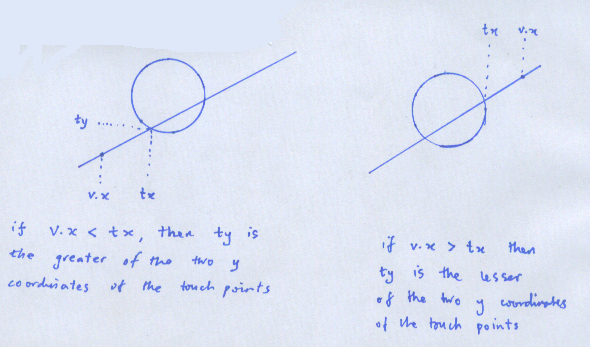 tx v.x
ty
v.x tx
if v.x < tx, then ty is
the greater of the two y
coordinates of the touch points
if v.x > tx then
ty is the lesser
of the two y coordinates
of the touch points